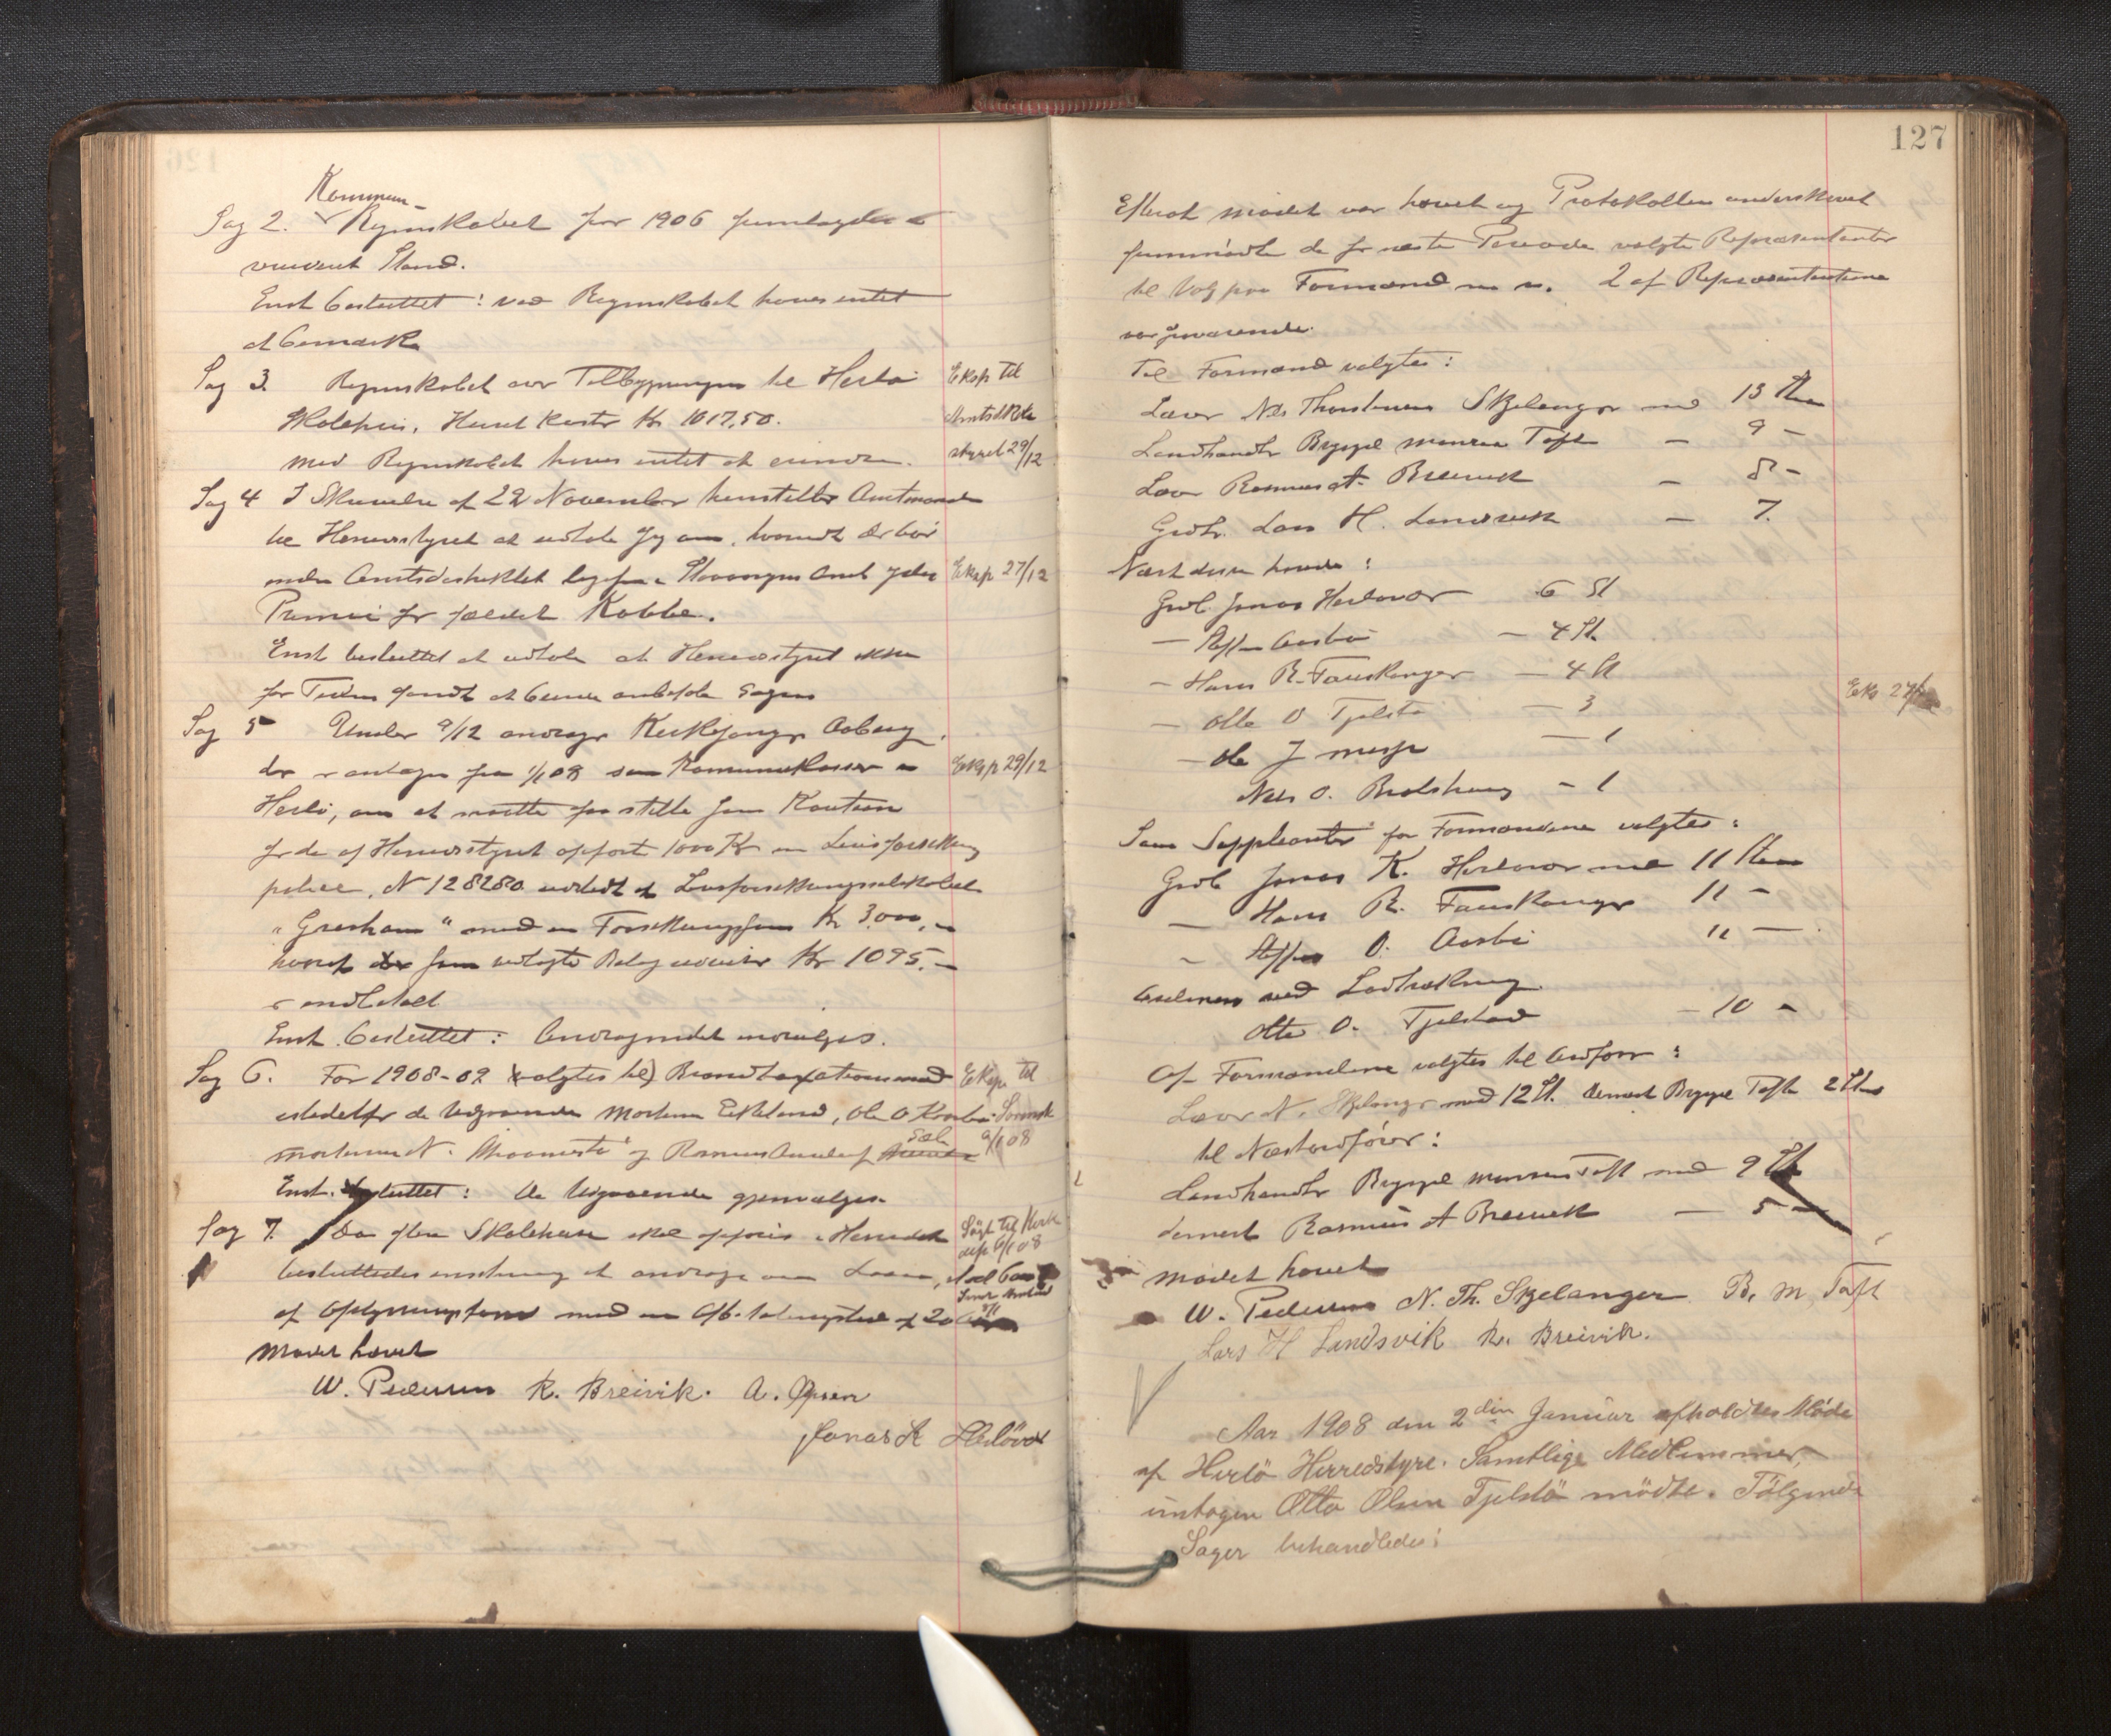 Kommun-
Sag 2. Regnskabet for 1906 fremlagdes i
revideret Stand.
Enst besluttet: ved Regnskabet haves intet
at bemærke
Sag 3. Regnskabet over Tilbygningen til Herlø
Skolehus, Huset koster Kr 1017,50.
Mod Regnskabet haves intet at erindre.
Eksp til
Amtsskole
styret 29/12
Sag 4 I Skrivelse af 22 November henstiller Amtmanden
til Herredstyret at udtale sig om, hvorvidt der bør
inden Amtsdistriktet ligesom i Stavanger Amt ydes
Eksp 27/12
Premie for fældet Kobbe.
Enst besluttet at udtale at Herredstyret ikke
for Tiden fandt at kunne anbefale Sagen
Sag 5 Under 9/12 andrager Kirkesanger Aaberg,
der er antagen fra 1/1 08 som Kommunekasserer i
Eksp 29/12
Herlø, om at maatte faa stille som Kaution
for de af Herredstyret opførte 1000 Kr en Livsforsikrings
police, N 128280 udstedt af Livsforsikringsselskabet
"Gresham" med en Forsikringssum Kr 3,000,-
hvoraf som vedlagte Bilag udviser Kr 1095,-
er indbetalt
Enst. besluttet: Andragendet indvilges.
Sag 6. For 1908-09 valgtes til Brandtaxationsmænd
Eksp til
istedetfor de Udgaaende Mortinus Eikeland, Ole O
Morlinus N. og Rasmus
9/1 08
Enst. besluttet: De Udgaaende gjenvælges
Sag 7. Da flere Skolehuse skal opføres i Herredet
Søgt til Kirke
dep 6/1 08
besluttedes enstemmig at andrage om Laan,
af Oplysningsfond med en Afbetalingstid af 20 Aar
Mødet hævet
W. Pedersen R. Breivik. A. Olsen
Jonas K Herløvær
127
Efterat mødet var hævet og Protokollen underskrevet
fremmødte de for næste Periode valgte Repræsentanter
til Valg paa Formænd m. m. 2 af Repræsentanterne
var fraværende.
Til Formænd valgtes:
Lærer Nils Thorsteinsen Skjelanger med 13 Stem
Landhandler Brygjel Monsen Toft — 9 -
Lærer Rasmus A. Breivik — 8 -
Grdb. Lars H. Landsvik — 7.
Næst disse havde:
Grdb. Jonas Herløvær 6 St
— Steffen Aasbø — 4 St.
— Hans R. Fauskanger — 4 St
— Otto O Tjelstø — 3
— Ole J — 1
Nils O. — 1
Som Suppleanter for Formændene valgtes:
Grdb Jonas K. Herløvær med 11 Stem
— Hans R. Fauskanger 11 -
— Steffen O. Aasbø 11 —
Aasbø ved Lodtrækning.
Otto O. Tjelstø — 10 -
Af Formændene valgtes til Ordfører:
Lærer N. Skjelanger med 12 St. dernæst Brygjel Toft 2 Stem
til Næstordfører:
Landhandler Brygjel Monsen Toft med 9 St
dernæst Rasmus A Breivik — 5 -
Mødet hævet
W. Pedersen N. Th. Skjelanger B. M Toft
Lars H Landsvik R. Breivik.
Aar 1908 den 2den Januar afholdtes Møde
af Herlö Herredstyre. Samtlige Medlemmer,
untagen Otto Olsen Tjelstö mödte. Fölgende
Sager behandledes: